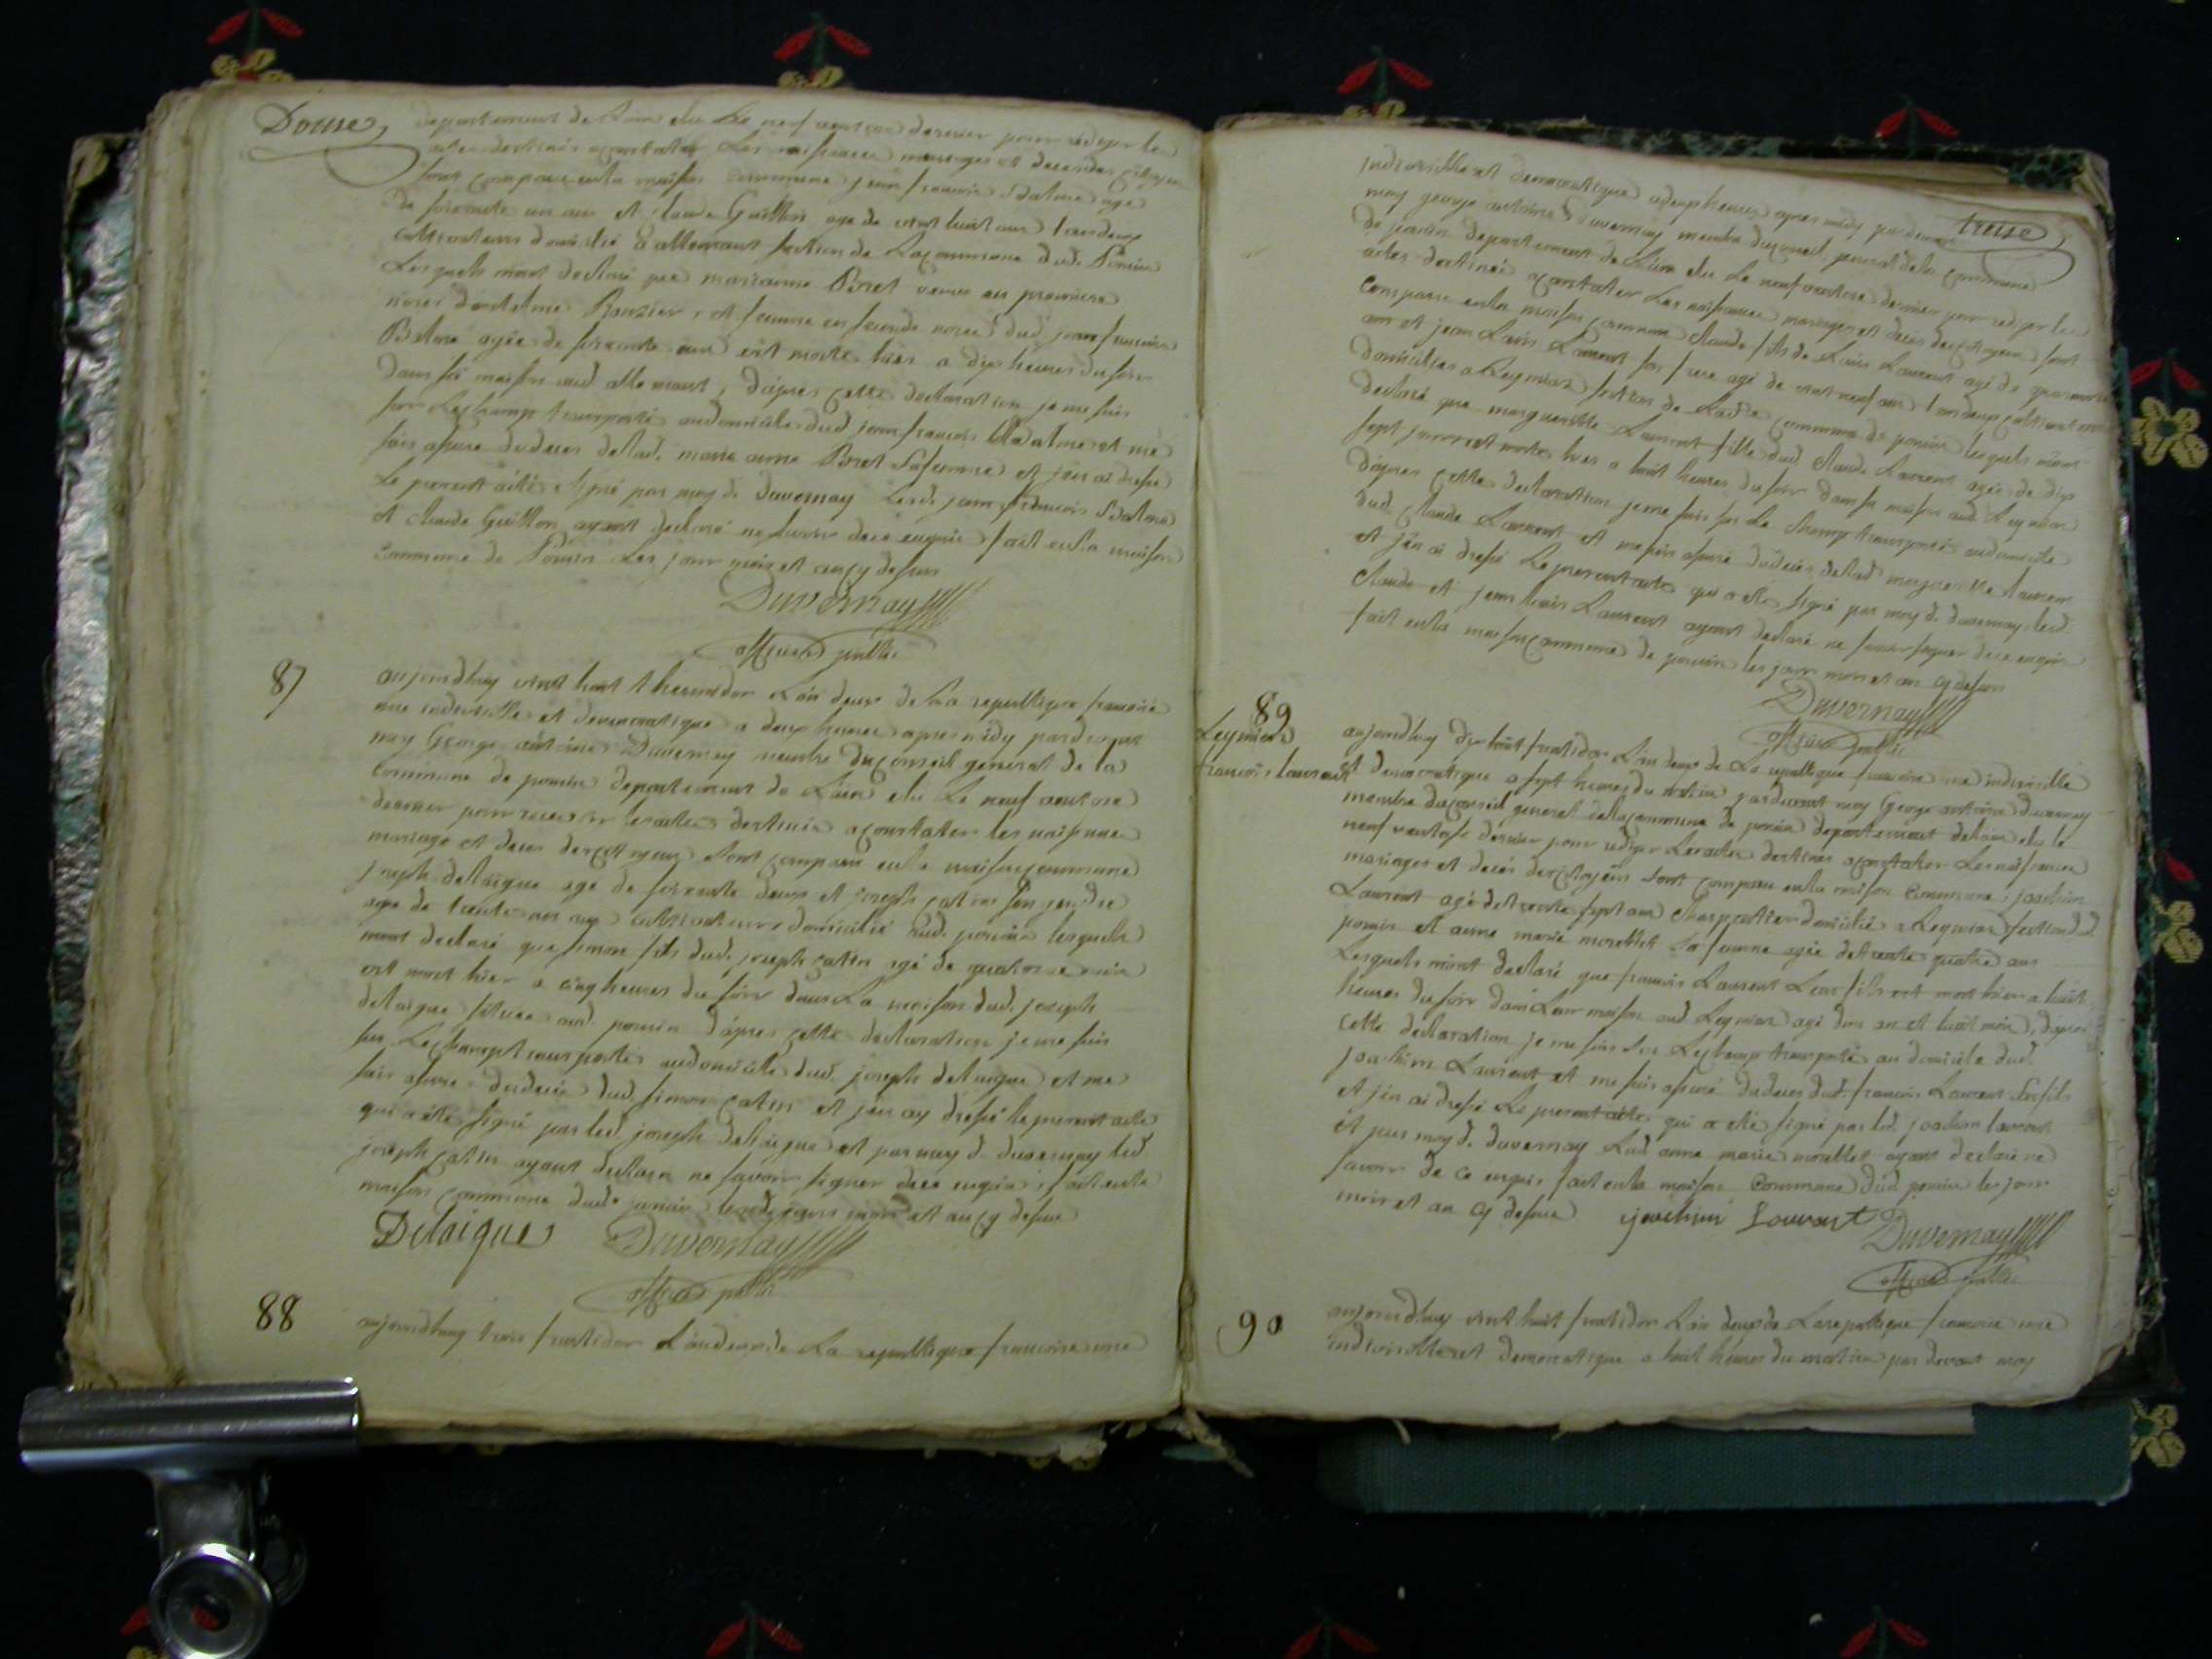 Douse,
departement de Lain elu Le neuf ventose dernier pour rediger les
actes destinés a constater Les naissances mariages et deces des citoyens
sont comparu en la maison commune jean francois Dalme agé
De soixante un ans et claude Guillon age de vint huit ans tous deux
cultivateurs domicilié a allemant section de La commune dud. Poncin
Lesquels mont declaré que marianne Poret veuve en premiere
noces danthelme Ravzier, et femme en seconde noces dud. jean francois
agée de soixante ans est morte hier a dix heures du soir
dans sa maison aud. allemant, dapres cette declaration je me suis
sur Le champ transporté au domicile dud. jean francois Dalme et me
suis assuré du deces de lad. marie anne Poret Sa femme et jen ai dressé
Le present acte signé par moy d. Duvernay Led. jean francois Dalme
et claude Guillon ayant declaré ne savoir de ce enquis fait en la maison
commune de Poncin Les jour mois et an cy dessus
Duvernay
officier public
87
aujourdhuy vint huit thermidor Lan deux de La republique francoise
une indivisible et democratique a deux heures apres midy pardevant
moy George antoine Duvernay membre du conseil general de la
commune de poncin departement de Lain elu Le neuf ventose
dernier pour recevoir les actes destinés a constater les naissances
mariage et deces des citoyens sont comparu en la maison commune
joseph delaigue agé de soixante deux et joseph catin son gendre
age de trente un ans cultivateurs domicilié aud. poncin lesquels
mont declaré que simon fils dud. joseph catin agé de quatorze mois
est mort hier a cinq heures du soir dans La maison dud. joseph
delaigue située aud. poncin dapres cette declaration je me suis
sur Le champ transporté au domicile dud. joseph delaigue et me
suis assuré du deces dud. simon catin et jen ay dressé le present acte
qui a été signé par led. joseph delaigue et par moy d. duvernay led.
joseph catin ayant declaré ne savoir signer de ce enquis, fait en la
maison commune dud. poncin les jours mois et an cy dessus
Delaigue Duvernay
officier public
88
aujourdhuy trois fructidor Lan deux de La republique francoise une
treise,
indivisible et democratique a deux heures apres midy pardevant
moy george antoine Duvernay membre du conseil general de la commune
de poncin departement de Lain elu Le neuf ventose dernier pour rediger les
actes destinés a constater Les naissances mariages et deces des citoyens sont
comparu en la maison commune Claude fils de Louis Laurent agé de quarante
ans et jean Louis Laurent son frere agé de vint neuf ans tous deux cultivateurs
domicilies a Leymiaz section de Ladte commune de poncin lesquels mont
declaré que marguerite Laurent fille dud. Claude Laurent agée de dix
sept jours est morte hier a huit heures du soir dans sa maison aud. Leymiaz
dapres cette declaration je me suis sur Le champ transporté au domicile
dud. Claude Laurent et me suis assuré du deces de lad. marguerite laurent
et jen ai dressé Le present acte qui a eté signé par moy d. duvernay, led.
Claude et jean louis Laurent ayant declaré ne savoir signer de ce enquis
fait en la maison commune de poncin les jour mois et an cy dessus
Duvernay
officier public
89
Leymiaz
francois laurent
aujourdhuy dix huit fructidor Lan deux de La republique francoise une indivisible
et democratique a sept heures du matin pardevant moy George antoine duvernay
membre du conseil general de la commune de poncin departement de lain elu le
neuf ventose dernier pour rediger Les actes destinés a constater Les naissances
mariages et deces des citoyens sont comparu en la maison commune, joachim
Laurent agé de trente sept ans charpentier domicilié a Leymiaz section dud.
poncin et anne marie morellet sa femme agée de trente quatre ans
Lesquels mont declaré que francois Laurent Leur fils est mort hier a huit
heures du soir dans Leur maison aud. Leymiaz agé dun an et huit mois, dapres
cette declaration je me suis sur Le champ transporté au domicile dud.
joachim Laurent et me suis assuré du deces dud. francois Laurent son fils
et jen ai dressé Le present acte qui a eté signé par led. joachim laurent
et par moy d. duvernay Lad. anne marie morellet ayant declaré ne
savoir de ce enquis fait en la maison commune dud. poncin les jour
mois et an cy dessus joachim Lourant Duvernay
officier public
90
aujourdhuy vint huit fructidor Lan deux de La republique francoise une
indivisible et democratique a huit heures du matin par devant moy